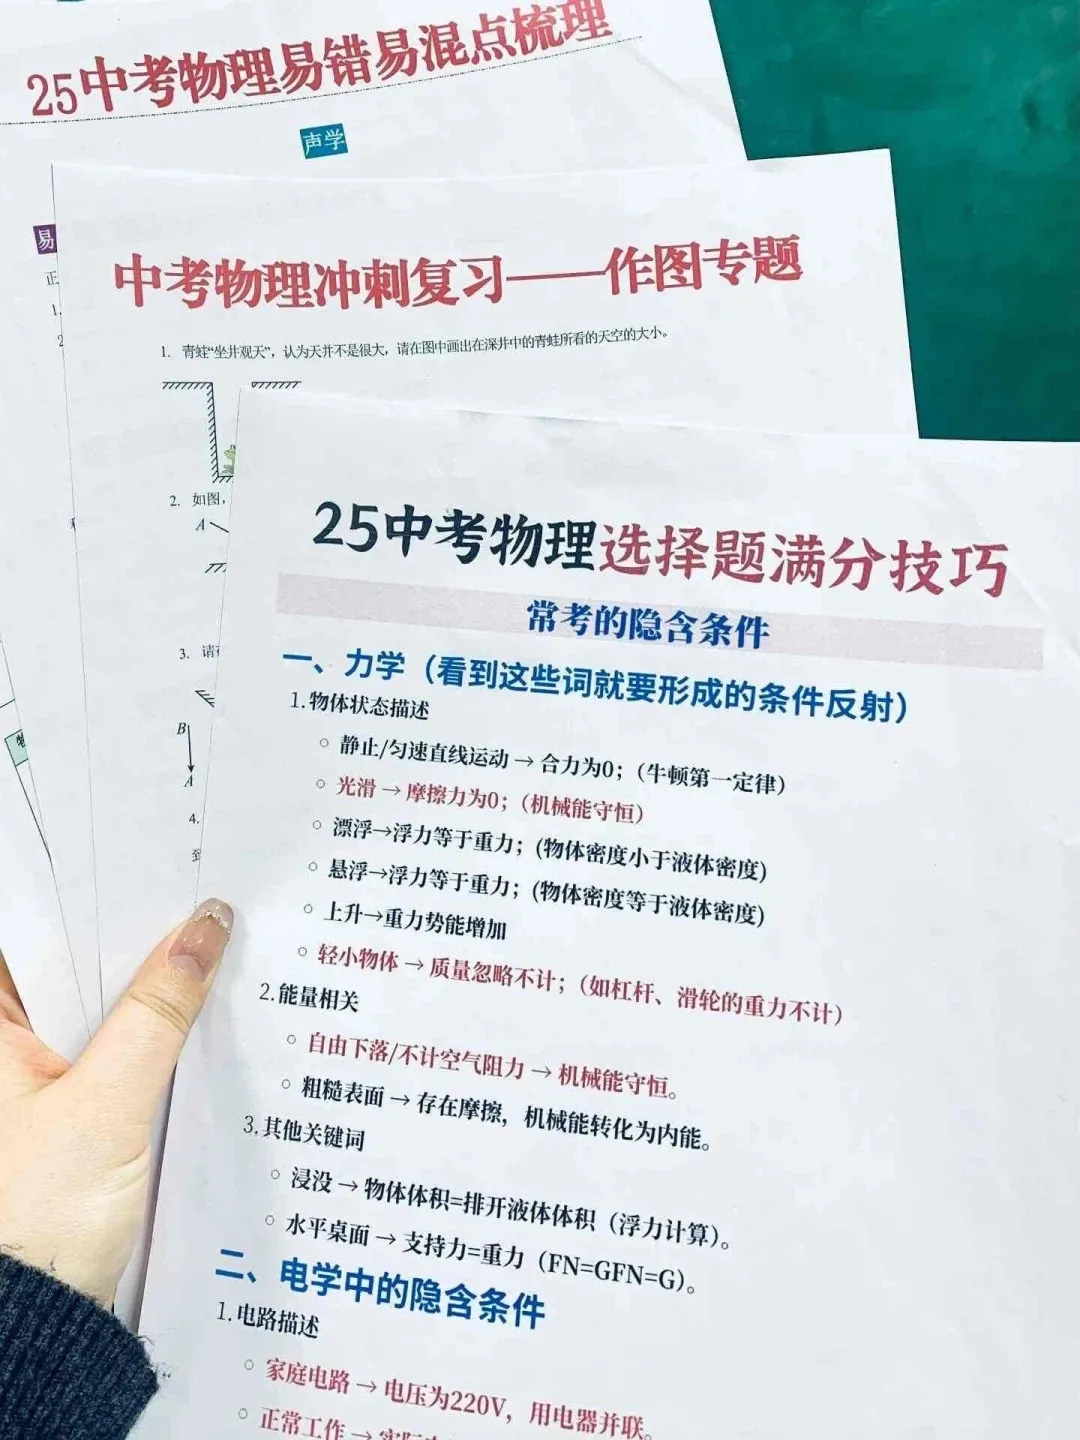 25中考物理易错易混点梳理
声学
易
正
1.
2
中考物理冲刺复习——作图专题
1. 青蛙“坐井观天”，认为天并不是很大，请在图中画出在深井中的青蛙所看的天空的大小。
2. 如图，
A
3. 请
B
A
4.
至
25中考物理选择题满分技巧
常考的隐含条件
一、力学（看到这些词就要形成的条件反射）
1.物体状态描述
○ 静止/匀速直线运动 → 合力为0；（牛顿第一定律）
○ 光滑 → 摩擦力为0；（机械能守恒）
○ 漂浮→浮力等于重力；(物体密度小于液体密度)
○ 悬浮→浮力等于重力；(物体密度等于液体密度)
○ 上升→重力势能增加
○ 轻小物体 → 质量忽略不计；（如杠杆、滑轮的重力不计）
2.能量相关
○ 自由下落/不计空气阻力 → 机械能守恒。
○ 粗糙表面 → 存在摩擦，机械能转化为内能。
3.其他关键词
○ 浸没 → 物体体积=排开液体体积（浮力计算）。
○ 水平桌面 → 支持力=重力（FN=GFN=G）。
二、电学中的隐含条件
1.电路描述
○ 家庭电路 → 电压为220V，用电器并联。
○ 正常工作 → 实际